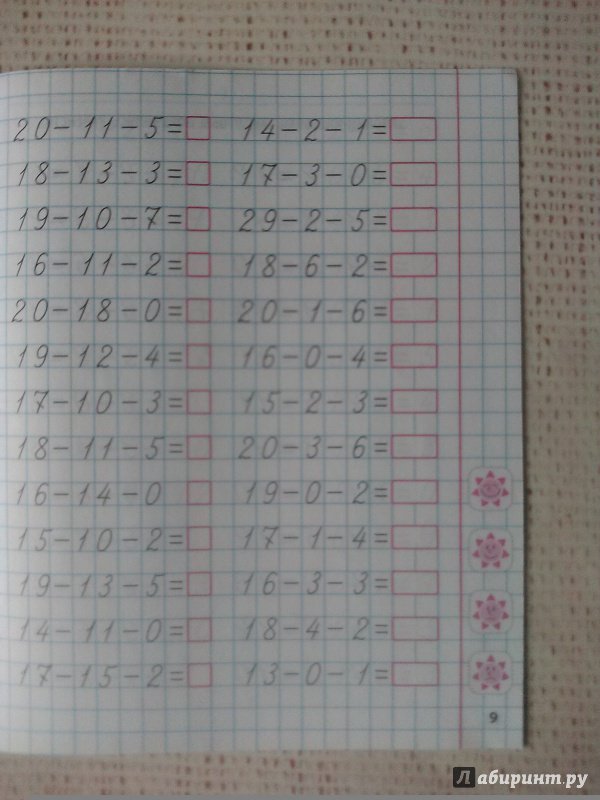 20-11-5= 14-2-1=
18-13-3= 17-3-0=
19-10-7= 29-2-5=
16-11-2= 18-6-2=
20-18-0= 20-1-6=
19-12-4= 16-0-4=
17-10-3= 15-2-3=
18-11-5= 20-3-6=
16-14-0 19-0-2=
15-10-2= 17-1-4=
19-13-5= 16-3-3=
14-11-0= 18-4-2=
17-15-2= 13-0-1=
9
Лабиринт.ру